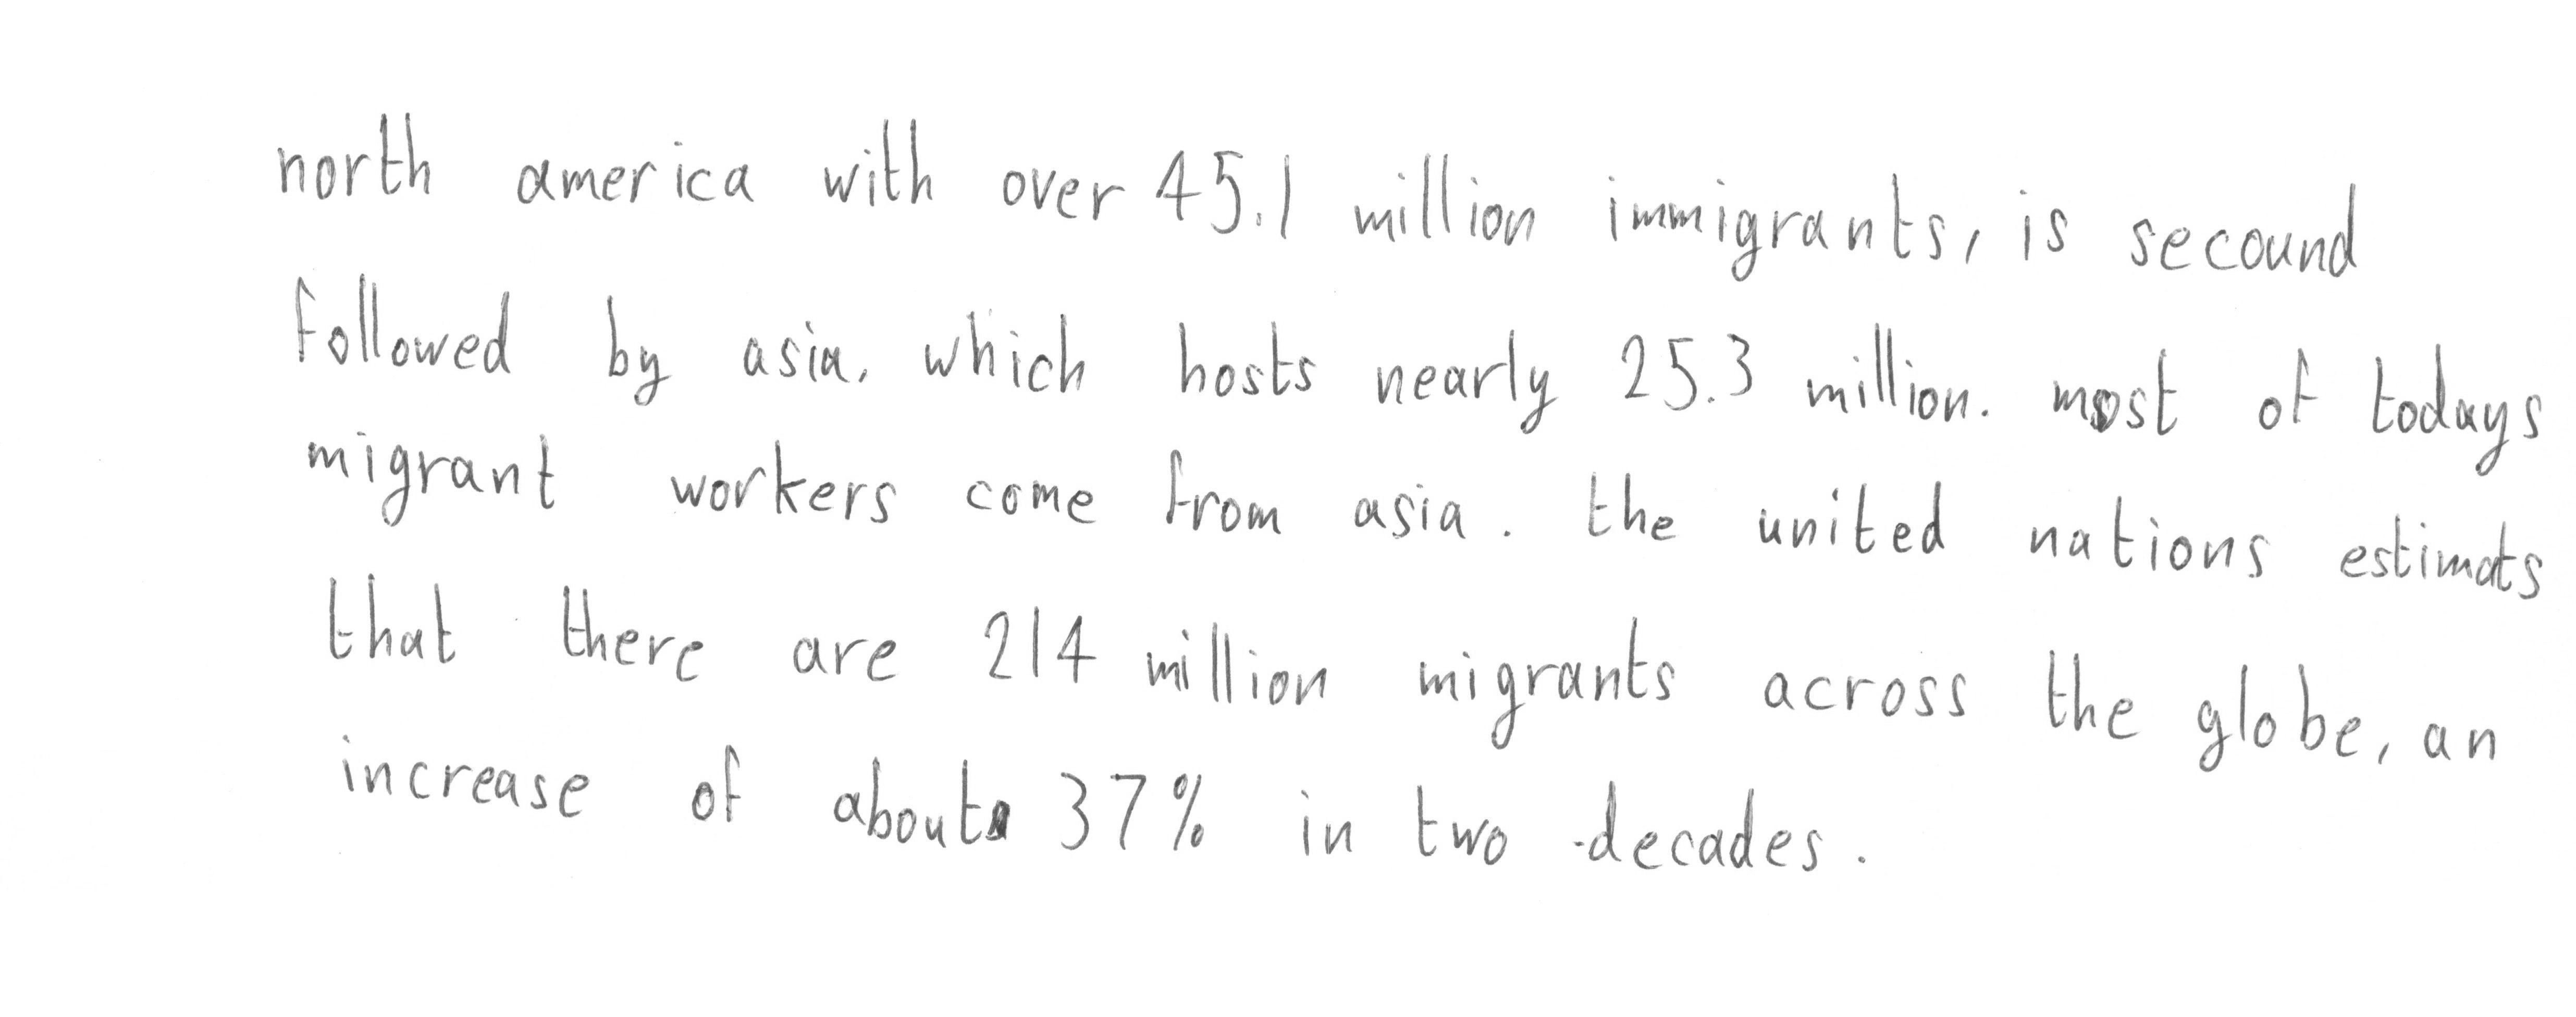 north america with over 45.1 million immigrants, is secound
followed by asia, which hosts nearly 25.3 million. most of todays
migrant workers come from asia. the united nations estimats
that there are 214 million migrants across the globe, an
increase of about 37% in two decades.